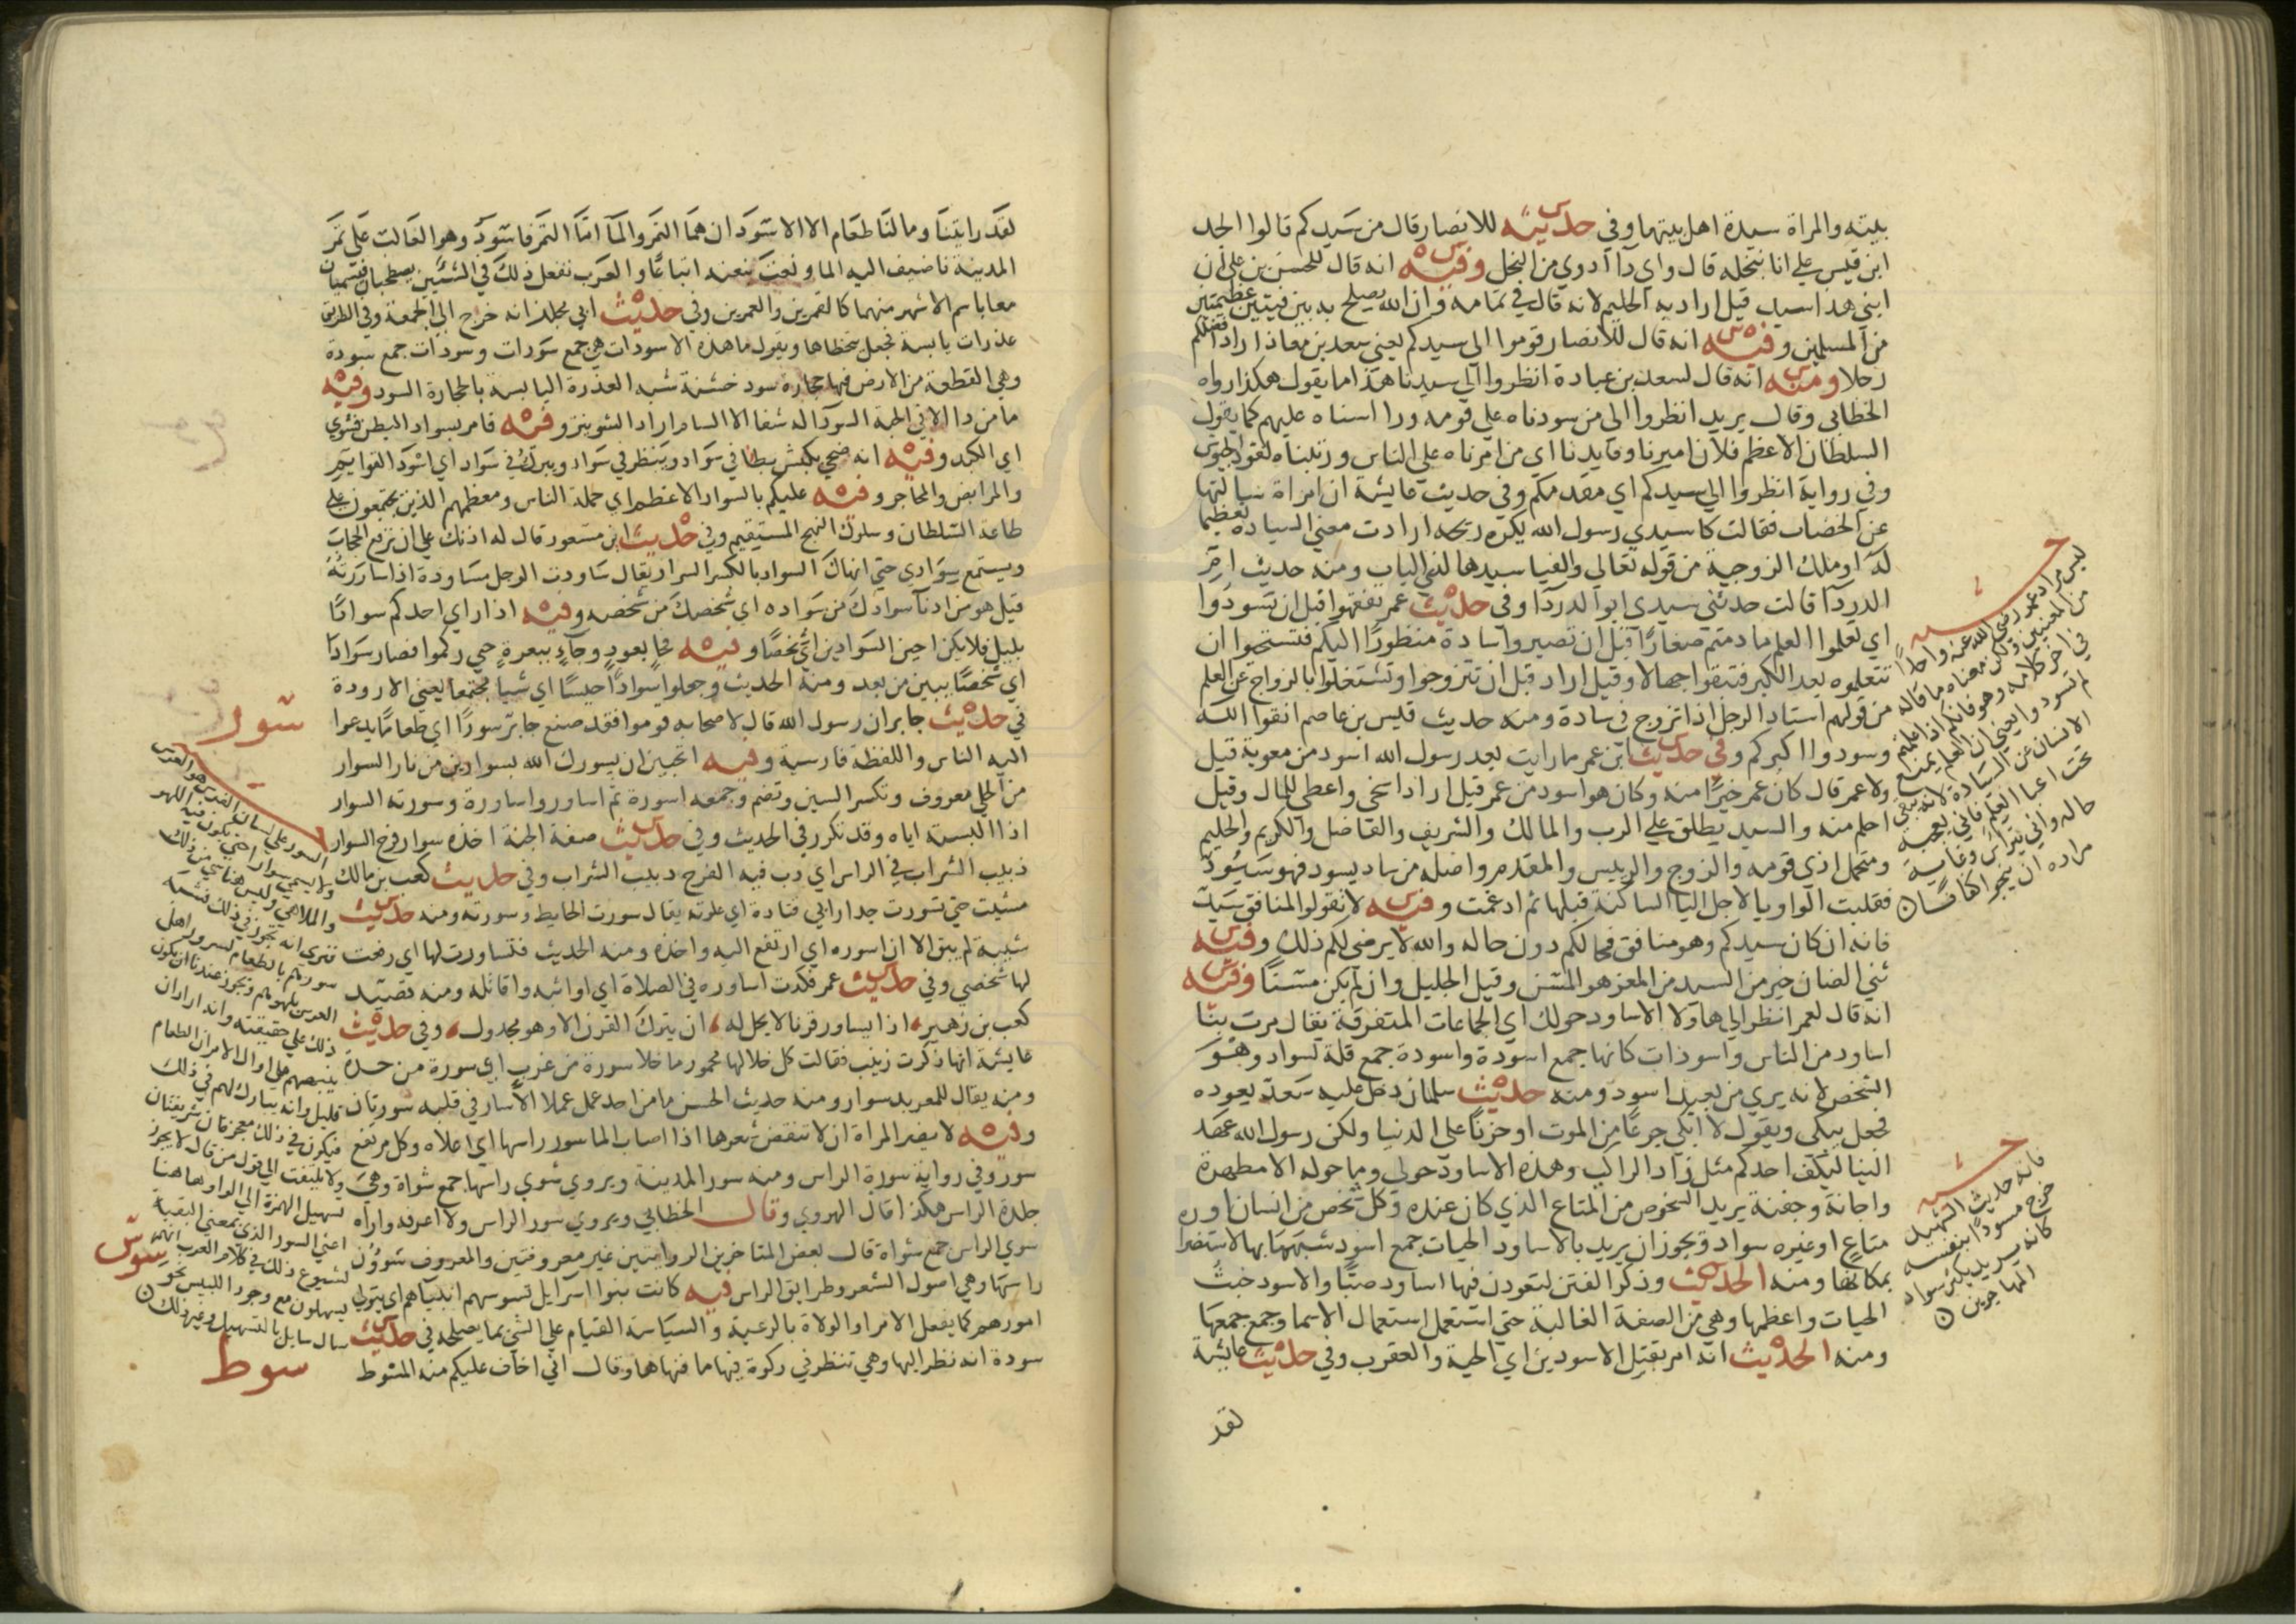 بيته والمراة سيدة اهل بيتها وفي حديثه للانصار قال من سيدكم قالوا الجد
ابن قيس على انا نبخله قال واي داء ادوي من البخل وفيه انه قال للحسن بن علي ان
ابني هذا سيد قيل اراد به الحليم لانه قال في تمامه وان الله يصلح به بين فئتين عظيمتين
من المسلمين وفيه انه قال للانصار قوموا الى سيدكم يعني سعد بن معاذ اراد افضلكم
رجلا ومنه انه قال لسعد بن عبادة انظروا الى سيدنا هذا ما يقول هكذا رواه
الخطابي وقال يريد انظروا الى من سودناه على قومه وراسناه عليهم كما يقول
السلطان الاعظم فلان اميرنا وقايدنا اي من امرناه على الناس ورتبناه لقود الجيوش
وفي رواية انظروا الى سيدكم اي مقدمكم وفي حديث عايشة ان امراة سالتها
عن الخضاب فقالت كان سيدي رسول الله يكره ريحه ارادت معنى السيادة تعظيما
له او ملك الزوجية من قوله تعالى والفيا سيدها لدى الباب ومنه حديث ام
الدرداء قالت حدثني سيدي ابو الدرداء وفي حديث عمر تفقهوا قبل ان تسودوا
اي تعلموا العلم ما دمتم صغارا قبل ان تصيروا سادة منظورا اليكم فتستحيوا ان
تتعلموه بعد الكبر فتبقوا جهالا وقيل اراد قبل ان تتزوجوا وتشتغلوا بالزواج عن العلم
من قولهم استاد الرجل اذا تزوج في سادة ومنه حديث قيس بن عاصم اتقوا الله
وسودوا اكبركم وفي حديث ابن عمر ما رايت بعد رسول الله اسود من معوية قيل
ولا عمر قال كان عمر خيرا منه وكان هو اسود من عمر قيل اراد اسخى واعطى للمال وقيل
احلم منه والسيد يطلق على الرب والمالك والشريف والفاضل والكريم والحليم
ومتحمل اذي قومه والزوج والرييس والمقدم واصله من ساد يسود فهو سيود
فقلبت الواو يا لاجل اليا الساكنة قبلها ثم ادغمت وفيه لا تقولوا للمنافق سيد
فانه ان كان سيدكم وهو منافق فحالكم دون حاله والله لا يرضى لكم ذلك وفيه
ثني الضان خير من السيد من المعز هو المسن وقيل الجليل وان لم يكن مسنا وفيه
انه قال لعمر انظر الى هاولا الاساود حولك اي الجماعات المتفرقة يقال مرت بنا
اساود من الناس واسودات كانها جمع اسودة واسودة جمع قلة لسواد وهو
الشخص لانه يرى من بعيد اسود ومنه حديث سلمان دخل عليه سعد يعوده
فجعل يبكي ويقول لا ابكي جزعا من الموت او حزنا على الدنيا ولكن رسول الله عهد
الينا ليكف احدكم مثل زاد الراكب وهذه الاساود حولي وما حوله الا مطهرة
واجانة وجفنة يريد الشخوص من المتاع الذي كان عنده وكل شخص من انسان او
متاع او غيره سواد ويجوز ان يريد بالاساود الحيات جمع اسود شبهها بها لاستضرا
بمكانها ومنه الحديث وذكر الفتن لتعودن فيها اساود صبا والاسود خبث
الحيات واعظمها وهي من الصفة الغالبة حتى استعمل استعمال الاسما وجمع جمعها
ومنه الحديث انه امر بقتل الاسودين اي الحية والعقرب وفي حديث عايشة
لقد
ليس مراد عمر رضي الله عنه واحدا
من المعنيين ولكن معناه ما قاله
في اخر كلامه وهو فانكم اذا علمتم
لم تسودوا يعني ان العلم يمنع
الانسان عن السيادة لانه يبقى
حاشية
فانه حديث التسهيل
خرج مسودا بنفسه
كانه يريد يكثر سواد
المهاجرين
لقد رايتنا وما لنا طعام الا الاسودان هما التمر والما اما التمر فاسود وهو الغالب على تمر
المدينة فاضيف اليه الما ونعت بنعته اتباعا والعرب تفعل ذلك في الشيئين يصطحبان فيسميان
معا باسم الاشهر منهما كالقمرين والعمرين وفي حديث ابي مجلز انه خرج الى الجمعة وفي الطريق
عذرات يابسة فجعل يتخطاها ويقول ما هذه الاسودات هي جمع سودات وسودات جمع سودة
وهي القطعة من الارض فيها حجارة سود خشنة شبه العذرة اليابسة بالحجارة السود وفيه
ما من دا الا في الحبة السودا له شفا الا السام اراد الشونيز وفيه فامر بسواد البطن فشوي
اي الكبد وفيه انه ضحى بكبش يطا في سواد وينظر في سواد ويبرك في سواد اي اسود القوايم
والمرابض والمحاجر وفيه عليكم بالسواد الاعظم اي جملة الناس ومعظمهم الذين يجتمعون على
طاعة السلطان وسلوك النهج المستقيم وفي حديث ابن مسعود قال له اذنك على ان ترفع الحجاب
ويستمع سوادي حتى انهاك السواد بالكسر السرار يقال ساودت الرجل مساودة اذا ساررته
قيل هو من ادنا سوادك من سواده اي شخصك من شخصه وفيه اذا راي احدكم سوادا
بليل فلا يكن اجبن السوادين اي شخصا وفيه فجا بعود وجا ببعرة حتى ركموا فصار سوادا
اي شخصا يبين من بعد ومنه الحديث وجعلوا سوادا حيسا اي شيا مجتمعا يعني الازودة
سور
في حديث جابر ان رسول الله قال لاصحابه قوموا فقد صنع جابر سورا اي طعاما يدعوا
اليه الناس واللفظة فارسية وفيه اتحبين ان يسورك الله بسوارين من نار السوار
من الحلي معروف وتكسر السين وتضم وجمعه اسورة ثم اساور واساورة وسورته السوار
اذا البسته اياه وقد تكرر في الحديث وفي حديث صفة الجنة اخذه سوار فرح السوار
دبيب الشراب في الراس اي دب فيه الفرح دبيب الشراب وفي حديث كعب بن مالك
مشيت حتى تسورت جدار ابي قتادة اي علوته يقال سورت الحايط وسورته ومنه حديث
شيبة لم يبق الا ان اسوره اي ارتفع اليه واخذه ومنه الحديث فتساورت لها اي رفعت
لها شخصي وفي حديث عمر فكدت اساوره في الصلاة اي اواثبه واقاتله ومنه قصيد
كعب بن زهير اذا يساور قرنا لا يحل له ان يترك القرن الا وهو مجدول وفي حديث
عايشة انها ذكرت زينب فقالت كل خلالها محمود ما خلا سورة من غرب اي سورة من حدة
ومنه يقال للمعربد سوار ومنه حديث الحسن ما من احد عمل عملا الا سار في قلبه سورتان
وفيه لا يضر المراة ان لا تنقض شعرها اذا اصاب الما سور راسها اي اعلاه وكل مرتفع
سور وفي رواية سورة الراس ومنه سور المدينة ويروي شوي راسها جمع شواة وهي
جلدة الراس هكذا قال الهروي وقال الخطابي ويروي سور الراس ولا اعرفه واراه
شوى الراس جمع شواة قال بعض المتاخرين الروايتين غير معروفتين والمعروف شوون
راسها وهي اصول الشعر وطرايق الراس فيه كانت بنوا اسرايل تسوسهم انبياهم اي يتولى
امورهم كما يفعل الامرا والولاة بالرعية والسياسة القيام على الشي بما يصلحه في حديث
سودة انه نظر اليها وهي تنظر في ركوة فيها ما فنهاها وقال اني اخاف عليكم منه المسوط
سوس
سوط